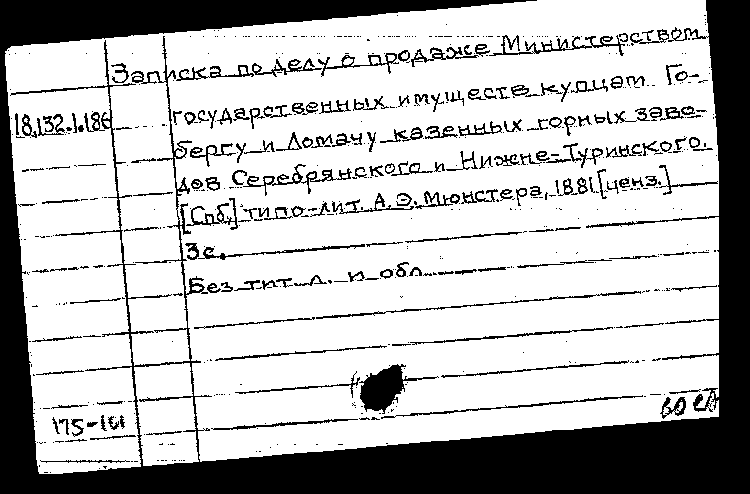 Записка по делу о продаже Министерством
18.132.1.186
государственных имуществ купцам Го-
бергу и Ломачу казенных горных заво-
дов Серебрянского и Нижне-Туринского.
[Спб.] типо-лит. А.Э. Мюнстера, 1881 [ценз.]
3с.
Без тит. л. и обл.
175-101